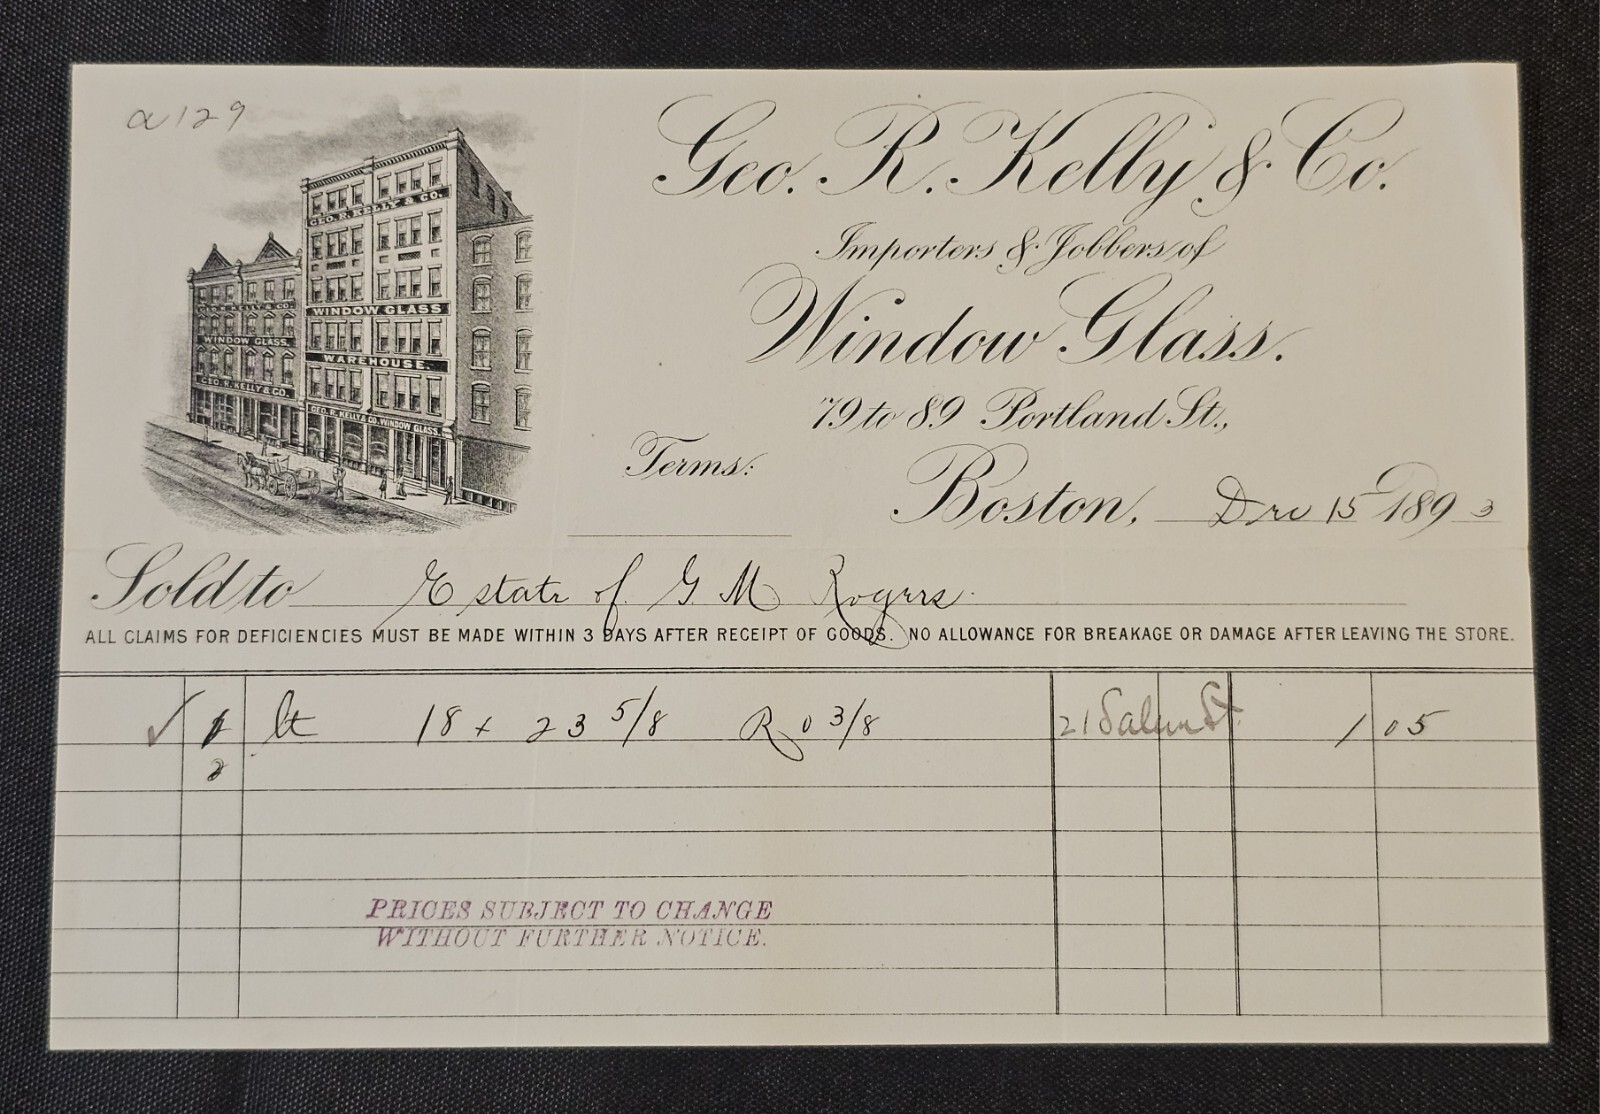 a 129
Geo. R. Kelly & Co.
Importers & Jobbers of
Window Glass.
79 to 89 Portland St.,
Terms:
Boston, Dec 15 1893
GEO. R. KELLY & CO.
WINDOW GLASS
WAREHOUSE.
GEO. R. KELLY & CO. WINDOW GLASS.
GEO. R. KELLY & CO.
WINDOW GLASS.
GEO. R. KELLY & CO.
Sold to Estate of G M Rogers
ALL CLAIMS FOR DEFICIENCIES MUST BE MADE WITHIN 3 DAYS AFTER RECEIPT OF GOODS. NO ALLOWANCE FOR BREAKAGE OR DAMAGE AFTER LEAVING THE STORE.
✓ lt 18 x 23 5/8 R 0 3/8 21 Salem St. 1 05
2
PRICES SUBJECT TO CHANGE
WITHOUT FURTHER NOTICE.